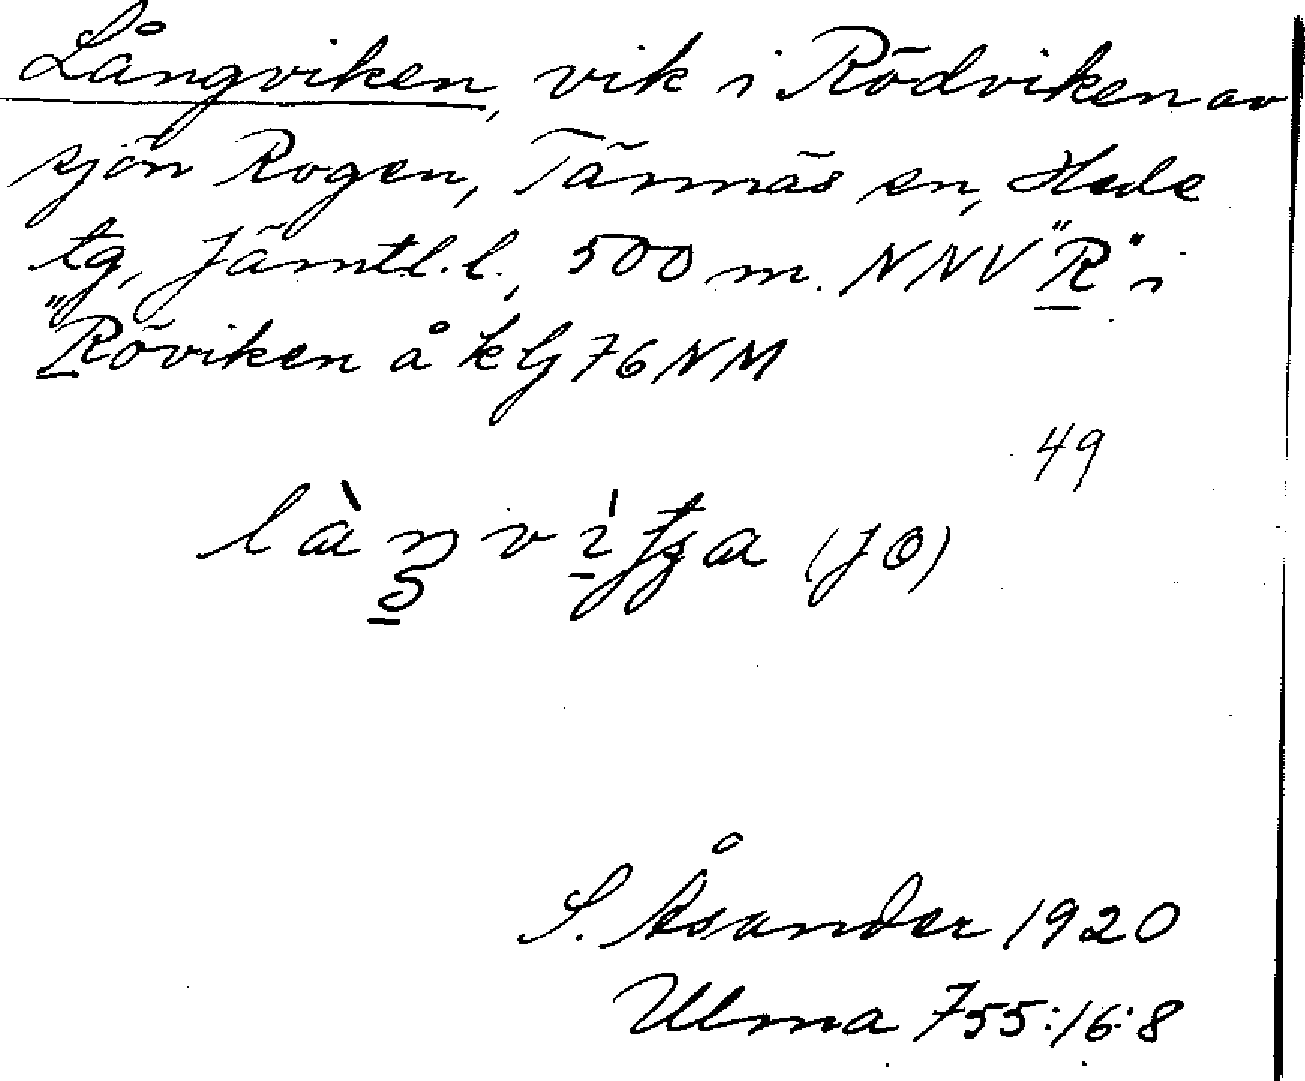 Långviken, vik i Rödviken av
sjön Rogen, Tännäs sn, Hede
tg, Jämtl.l., 500 m. NNV "R" i
"Röviken å kbl 76 NM
49
(JO)
S. Åsander 1920
Ulma 755:16:8